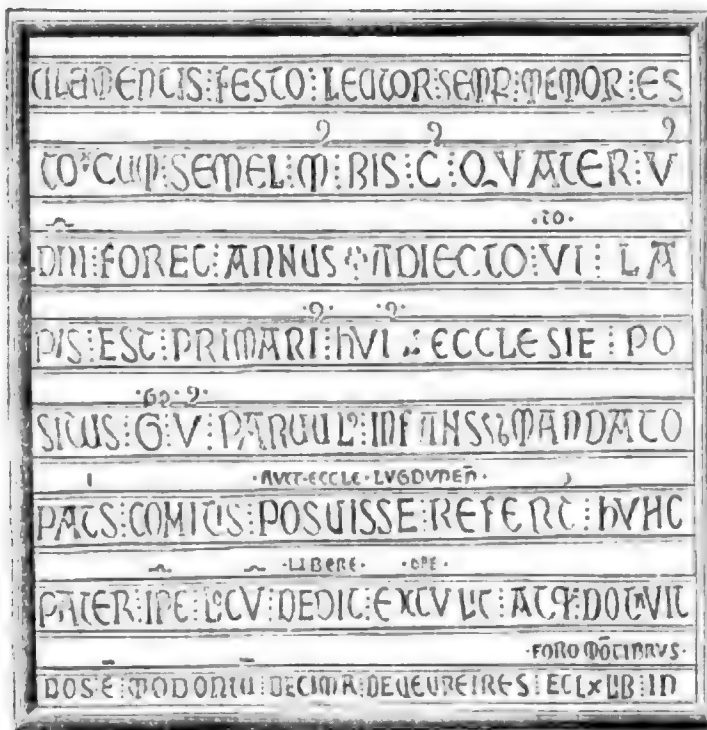 CLEMENTIS : FESTO : LECTOR : SEMPR : MEMOR : ES
TO : CUM : SEMEL : M : BIS : C : QVATER : V
·TO·
DNI : FORET : ANNUS ADIECTO : VI : LA
·9· ·9·
PIS : EST : PRIMARI : hVI : ECCLESIE : PO
SITUS : G : V : PARUUL : INFANS MANDATO
·AVCT·ECCLE·LVGDVNEN̄·
PATS : COMITIS : POSUISSE : REFERT : hVNC
·LIBERE· ·OPE·
PATER : IPE : LOCV : DEDIT : EXTVLIT : ATQ : DOTAVIT
·FORO MŌTIBRVS·
DOS : E : MODONIU : DECIMA : DEVEUREIRES : ECLX LIB : IN